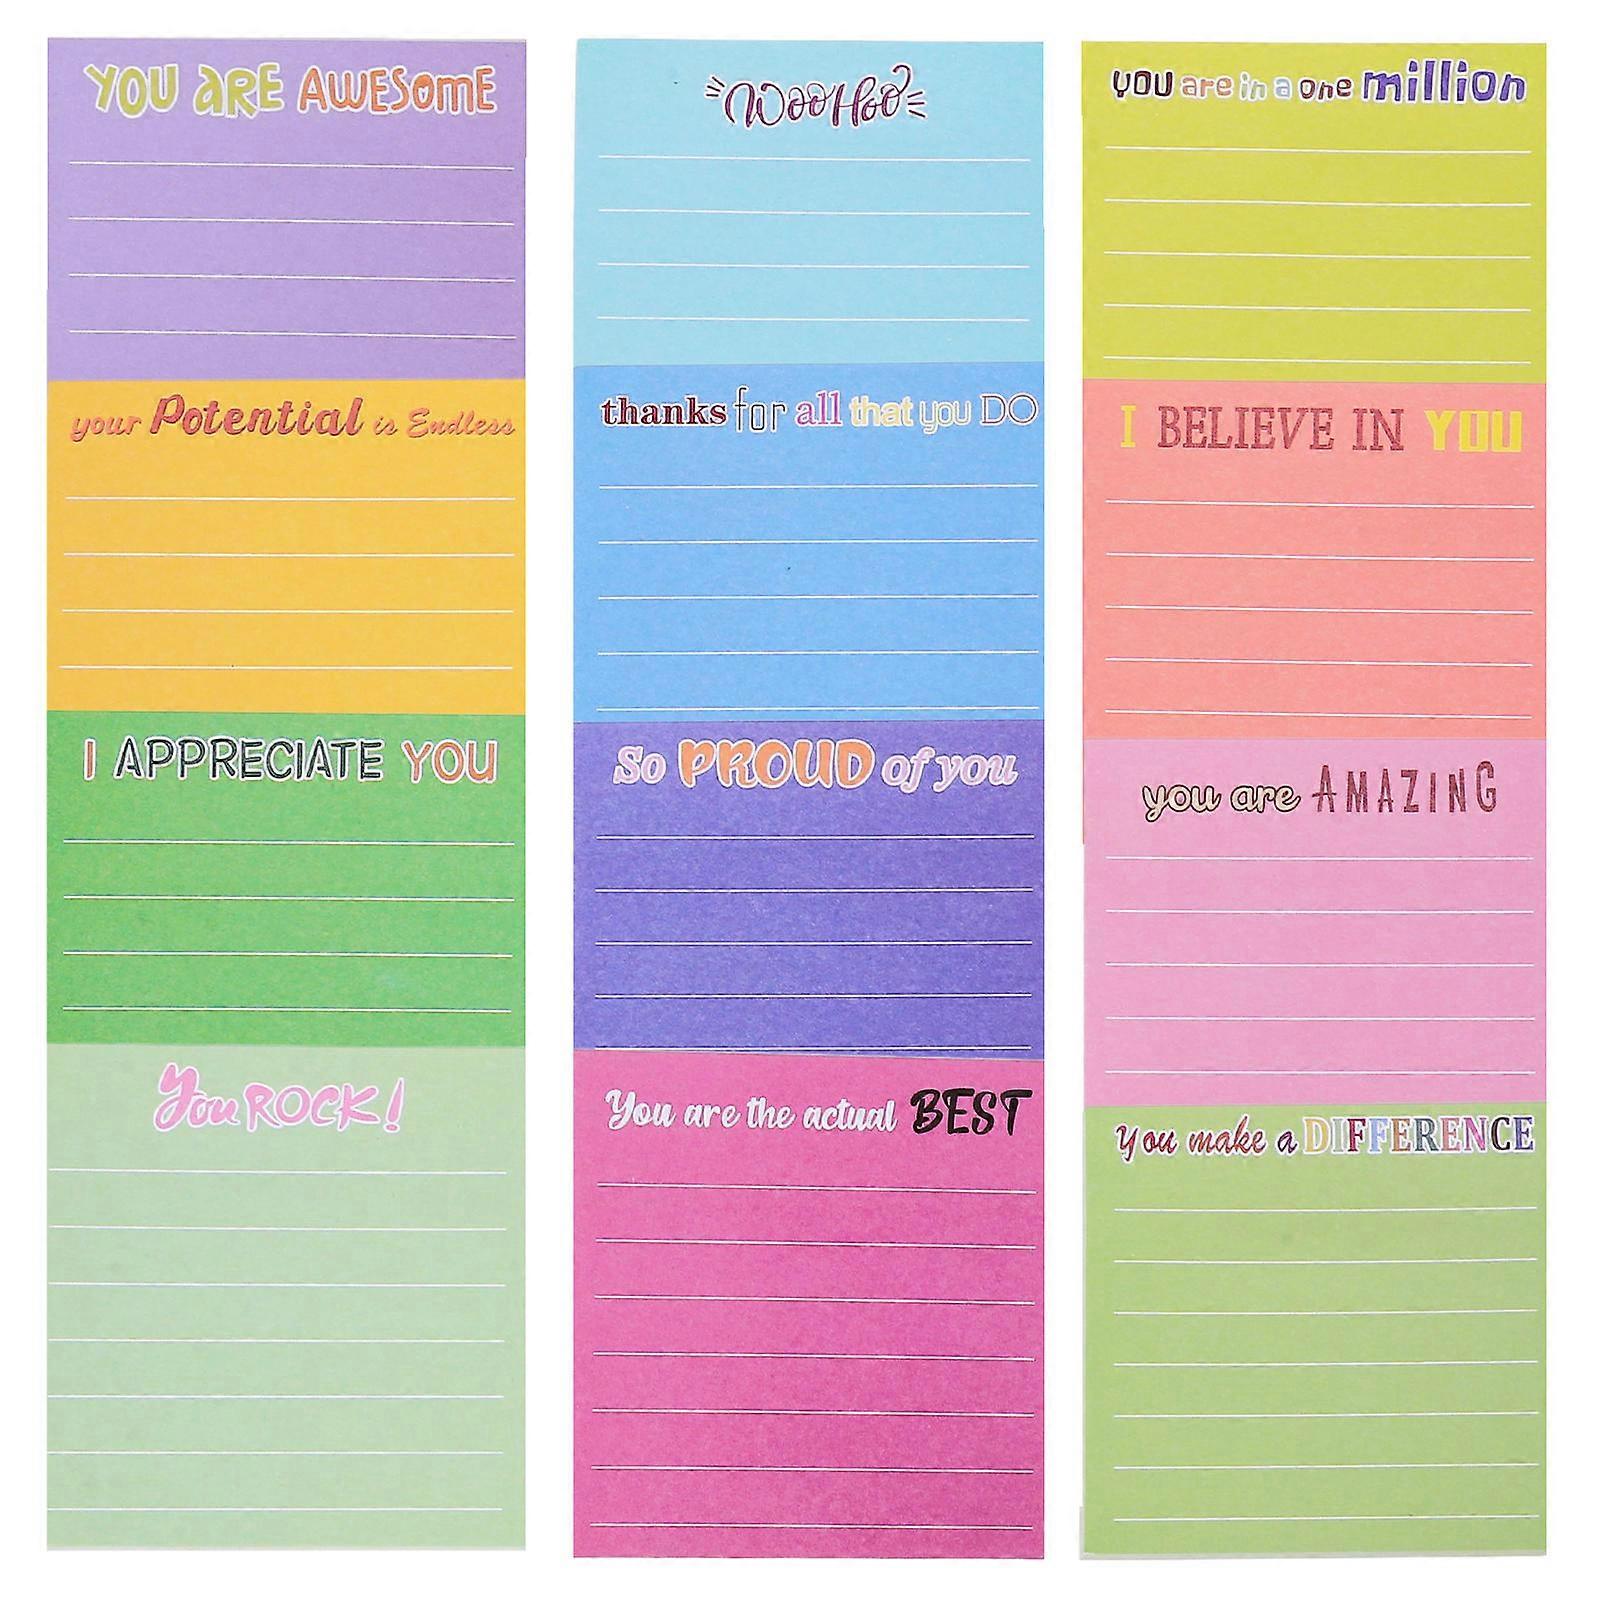 YOU ARE AWESOME
your Potential is Endless
I APPRECIATE YOU
You ROCK!
WooHoo
thanks for all that you DO
So PROUD of you
You are the actual BEST
you are in a one million
I BELIEVE IN YOU
you are AMAZING
You make a DIFFERENCE